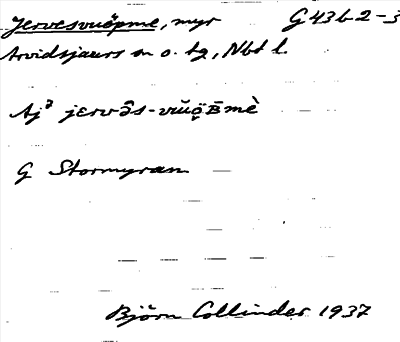 Jervesvuöpme, myr G 43 b 2-3
Arvidsjaurs sn o. tg, Nbt l.
Aj² jervə̂s-vŭo̤B̄mè
G Stormyran
Björn Collinder 1937